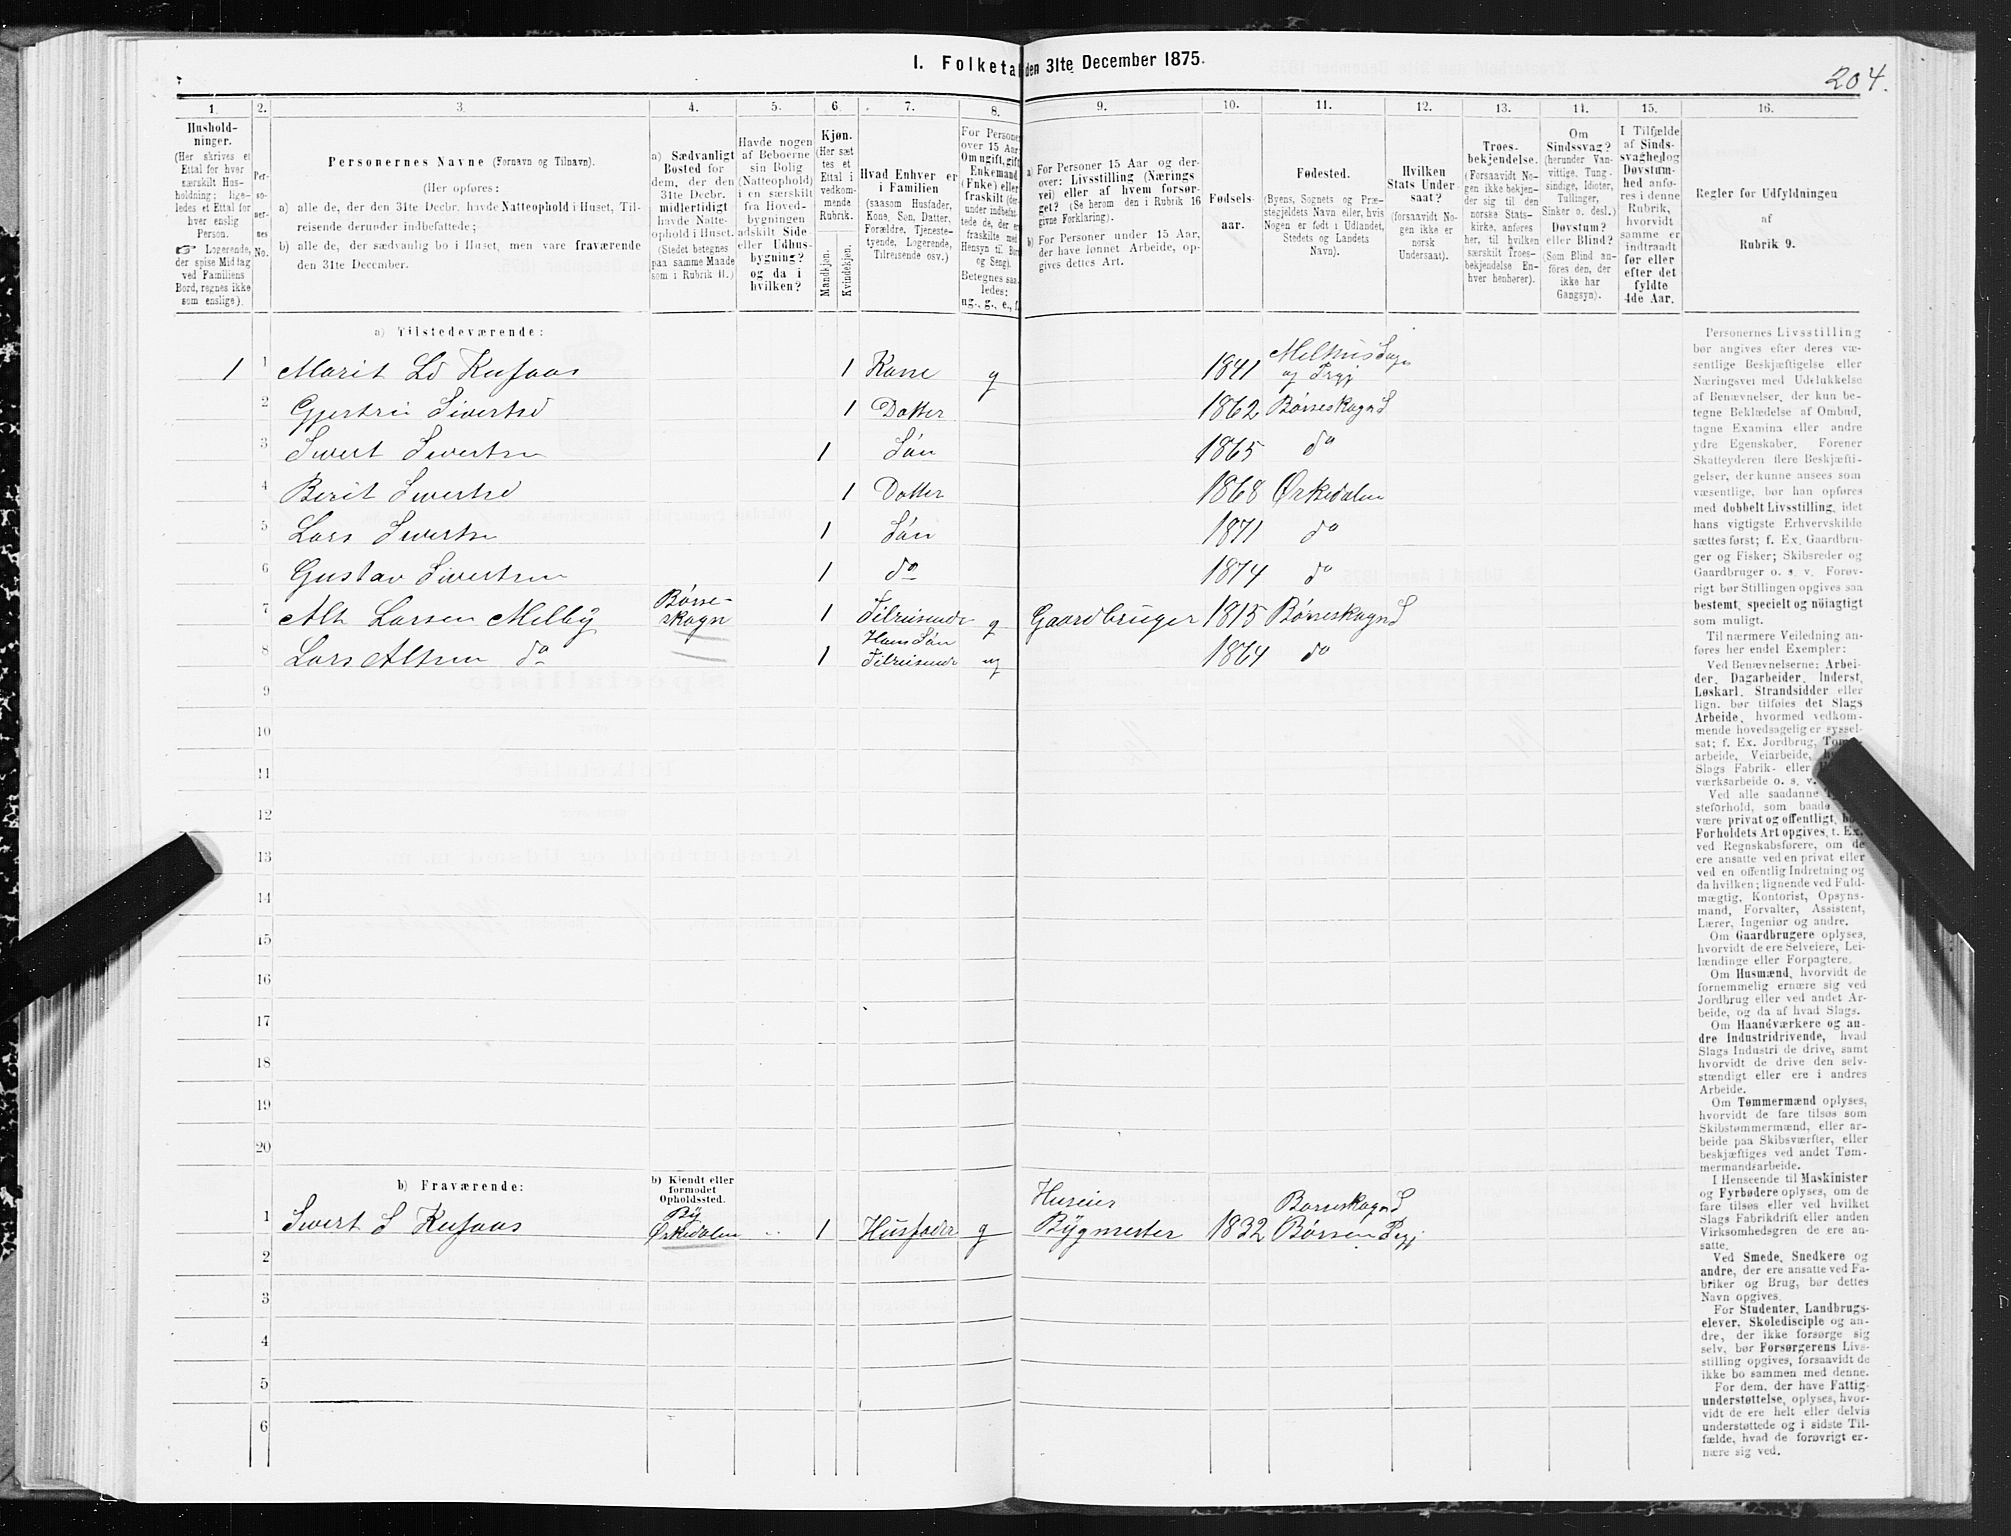 I. Folketa den 31te December 1875.
204.
1.
2.
3.
4.
5.
6.
7.
8.
9.
10.
11.
12.
13.
14.
15.
16.
Hushold-
ninger.
(Her skrives et
Ettal for hver
særskilt Hus-
holdning; lige-
ledes et Ettal for
hver enslig
Person.
☞ Logerende,
der spise Middag
ved Familiens
Bord, regnes ikke
som enslige).
Per-
so-
ner-
nes
No.
Personernes Navne (Fornavn og Tilnavn).
(Her opføres:
a) alle de, der den 31te Decbr. havde Natteophold i Huset, Til-
reisende derunder indbefattede;
b) alle de, der sædvanlig bo i Huset, men vare fraværende
den 31te December.
a) Sædvanligt
Bosted for
dem, der den
31te Decbr.
midlertidigt
havde Natte-
ophold i Huset.
(Stedet betegnes
paa samme Maade
som i Rubrik 11.)
Havde nogen
af Beboerne
sin Bolig
(Natteophold)
i en særskilt
fra Hoved-
bygningen
adskilt Side-
eller Udhus-
bygning?
og da i
hvilken?
Kjøn.
(Her sæt
tes et
Ettal i
vedkom-
mende
Rubrik.
Mandkjøn.
Kvindekjøn.
Hvad Enhver er
i Familien
(saasom Husfader,
Kone, Søn, Datter,
Forældre, Tjeneste-
tyende, Logerende,
Tilreisende osv.)
For Persone
over 15 Aar
Om ugift, gift
Enkemand
(Enke) eller
fraskilt (der-
under indbefat-
tede de, der ere
fraskilte med
Hensyn til Bord
og Seng).
Betegnes saa-
ledes:
ug., g., e., f.
a) For Personer 15 Aar og der-
over: Livsstilling (Nærings
vei) eller af hvem forsør-
get? (Se herom den i Rubrik 16
givne Forklaring).
b) For Personer under 15 Aar,
der have lønnet Arbeide, op-
gives dettes Art.
Fødsels-
aar.
Fødested.
(Byens, Sognets og Præ-
stegjeldets Navn eller, hvis
Nogen er født i Udlandet,
Stedets og Landets
Navn).
Hvilken
Stats Under-
saat?
(forsaavidt No-
gen ikke er
norsk
Undersaat).
Troes-
bekjendelse.
(Forsaavidt No-
gen ikke bekjen-
der sig til den
norske Stats-
kirke, anføres
her, til hvilken
særskilt Troes-
bekjendelse En-
hver henhører).
Om
Sindssvag?
(herunder Van-
vittige, Tung-
sindige, Idioter,
Tullinger,
Sinker o. desl.)
Døvstum?
eller Blind?
(Som Blind an-
føres den, der
ikke har
Gangsyn).
I Tilfælde
af Sinds-
svaghed og
Døvstum-
hed anfø-
res i denne
Rubrik,
hvorvidt
samme er
indtraadt
før eller
efter det
fyldte
4de Aar.
Regler for Udfyldningen
af
Rubrik 9.
a) Tilstedeværende:
1 1 Marit Ld Kufaas 1 Kone g 1841 Melhus Sogn og Prgj
2 Gjertrui Sivertsd 1 Datter 1862 Børseskogn S
3 Sivert Sivertsn 1 Søn 1865 do
4 Berit Sivertsd 1 Datter 1868 Ørkedalen
5 Lars Sivertsn 1 Søn 1871 do
6 Gustav Sivertsen 1 do 1874 do
7 Alt Larsen Melby Børse-skogn 1 Tilreisende g Gaardbruger 1815 Børseskogn S
8 Lars Altsen do 1 Hans Søn Tilreisende ug 1864 do
9
10
11
12
13
14
15
16
17
18
19
20
b) Fraværende:
b) Kjendt eller
formodet
Opholdssted.
1 Sivert S Kufaas By Ørkedalen 1 Husfader g Huseier Bygmester 1832 Børseskogn S Børsen Prgj
2
3
4
5
6
Personernes Livsstilling
bør angives efter deres væ-
sentlige Beskjæftigelse eller
Næringsvei med Udelukkelse
af Benævnelser, der kun be-
tegne Beklædelse af Ombud,
tagne Examina eller andre
ydre Egenskaber. Forener
Skatteyderen flere Beskjæfti-
gelser, der kunne ansees som
væsentlige, bør han opføres
med dobbelt Livsstilling, idet
hans vigtigste Erhvervskilde
sættes først; f. Ex. Gaardbru-
ger og Fisker; Skibsreder og
Gaardbruger o. s. v. Forøv-
rigt bør Stillingen opgives saa
bestemt, specielt og nöiagtigt
som muligt.
Til nærmere Veiledning an-
føres her endel Exempler:
Ved Benævnelserne: Arbei-
der, Dagarbeider, Inderst,
Løskarl, Strandsidder eller
lign. bør tilføies det Slags
Arbeide, hvormed vedkom-
mende hovedsagelig er syssel-
sat; f. Ex. Jordbrug, Tøm
arbeide, Veiarbeide, h
Slags Fabrik- eller
værksarbeide o. s. v.
Ved alle saadanne
steforhold, som baade
være privat og offentligt, bør
Forholdets Art opgives, t. Ex.
ved Regnskabsførere, om de
ere ansatte ved en privat eller
ved en offentlig Indretning og
da hvilken; lignende ved Fuld-
mægtig, Kontorist, Opsyns-
mand, Forvalter, Assistent,
Lærer, Ingeniør og andre.
Om Gaardbrugere oplyses,
hvorvidt de ere Selveiere, Lei-
lændinge eller Forpagtere.
Om Husmænd, hvorvidt de
fornemmelig ernære sig ved
Jordbrug eller ved andet Ar-
beide, og da af hvad Slags.
Om Haandværkere og an-
dre Industridrivende, hvad
Slags Industri de drive, samt
hvorvidt de drive den selv-
stændigt eller ere i andres
Arbeide.
Om Tømmermænd oplyses,
hvorvidt de fare tilsøs som
Skibstømmermænd, eller ar-
beide paa Skibsværfter, eller
beskjæftiges ved andet Tøm-
mermandsarbeide.
I Henseende til Maskinister
og Fyrbødere oplyses, om de
fare tilsøs eller ved hvilket
Slags Fabrikdrift eller anden
Virksomhedsgren de ere an-
satte.
Ved Smede, Snedkere og
andre, der ere ansatte ved Fa-
briker og Brug, bør dettes
Navn opgives.
For Studenter, Landbrugs-
elever, Skoledisciple og an-
dre, der ikke forsørge sig
selv, bør Forsørgerens Livs-
stilling opgives, forsaavidt de
ikke bo sammen med denne.
For dem, der have Fattig-
understøttelse, oplyses, hvor-
vidt de ere helt eller delvis
understøttede og i sidste Til-
fælde, hvad de forøvrigt er-
nære sig ved.